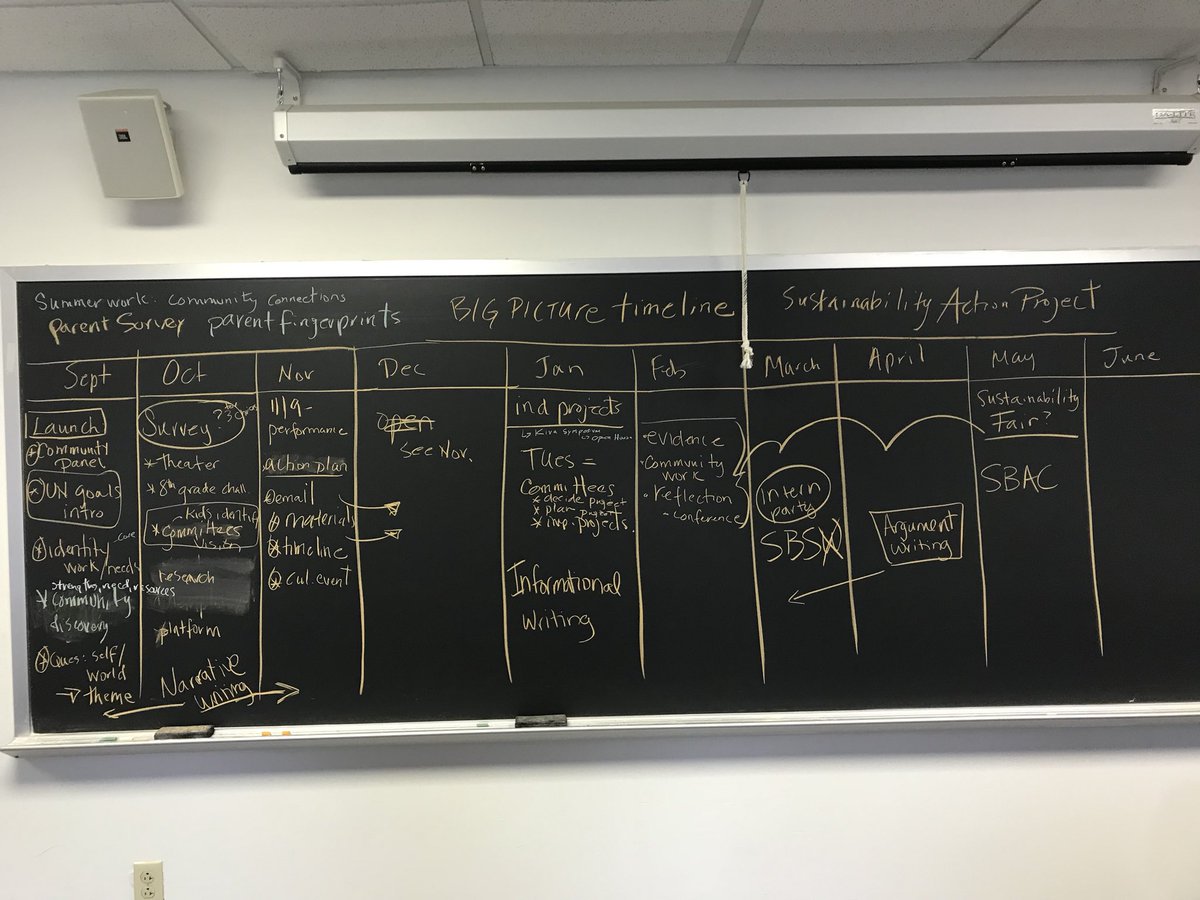 Summer work. community connections
parent Survey parent fingerprints
BIG PICTURE timeline
Sustainability Action Project
Sept
Launch
Community
panel
UN goals
intro
identity
work/needs
strengths, need, resources
community
discovery
Ques: self/
world
→ theme
Oct
Survey?
theater
8th grade chall.
kids identify
committees
vision
research
platform
Narrative
writing
Nov
11/9-
performance
action plan
email
materials
timeline
cul. event
Dec
open
see Nov.
Jan
ind projects
↳ Kiva Symposium
↳ Open House
Tues =
Committees
decide project
plan project
imp. projects
Informational
writing
Feb
evidence
community
work
reflection
conference
March
intern
party
SBS
April
Argument
writing
May
Sustainability
Fair?
SBAC
June
JBL